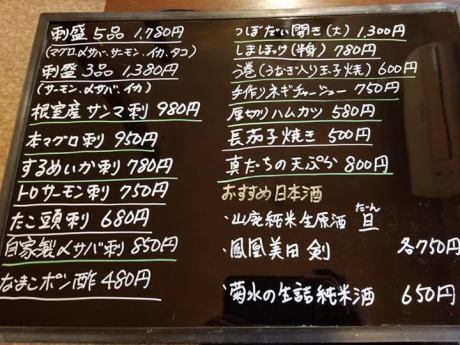 刺盛 5品 1,780円
(マグロ、〆サバ、サーモン、イカ、タコ)
刺盛 3品 1,380円
(サーモン、〆サバ、イカ)
根室産 サンマ刺 980円
本マグロ刺 950円
するめいか刺 780円
トロサーモン刺 750円
たこ頭刺 680円
自家製〆サバ刺 850円
なまこポン酢 480円
つぼだい開き(大) 1,300円
しまほっけ(半身) 780円
う巻(うなぎ入り玉子焼) 600円
手作りネギチャーシュー 750円
厚切ハムカツ 580円
長茄子焼き 500円
真だちの天ぷら 800円
おすすめ日本酒
・山廃純米生原酒 旦
・鳳凰美田 剣 各750円
・菊水の生詰純米酒 650円